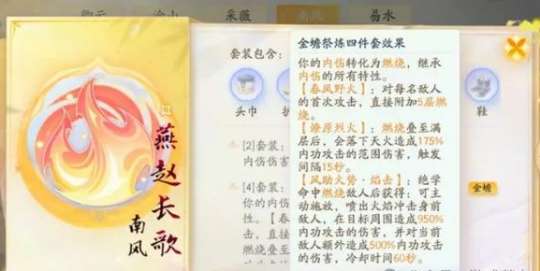 采薇
南风
易水
金蟾祭炼四件套效果
套装包含：
你的内伤转化为燃烧，继承
内伤的所有特性。
【春风野火】：对每名敌人
的首次攻击，直接附加5层燃
烧。
【燎原烈火】：燃烧叠至满
层后，会落下天火造成175%
内功攻击的范围伤害，触发
间隔15秒。
【风助火势·焰击】：绝学
命中燃烧敌人后获得：可主
动施放，喷出火焰冲击身前
敌人，在目标周围造成950%
内功攻击的伤害，并对当前
敌人额外造成500%内功攻击
的伤害，冷却时间60秒。
头巾
鞋
[2]套装：
内伤伤害
[4]套装：
你的内伤
【春
燃烧
叠至满
造成
金蟾
燕赵长歌
南风